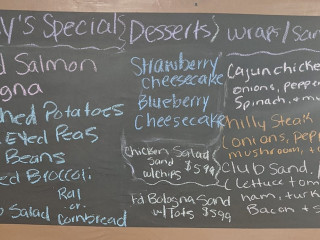 y's Special
d Salmon
gna
hed Potatoes
Eyed Peas
Beans
ed Broccoli
Roll
or
Salad Cornbread
Desserts
Strawberry
Cheesecake
Blueberry
Cheesecake
Chicken Salad
Sand
w/chips $5.99
Fd Bologna Sand
w/Tots $5.99
Wraps/San
Cajun chicke
onions, pepper
Spinach, + mu
hilly Steak
onions, Pepp
mushroom, +
Club Sand.
(lettuce tom
ham, turk
Bacon + s